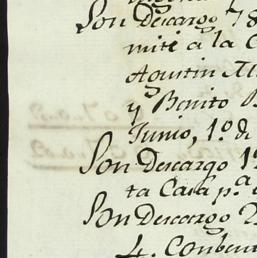 Son Descargo 78
mite a la C
Agustin M
y Benito B
Junio, 1.º de
Son Descargo 12
ta Casa p.a
Son Descargo 2
4. Conben